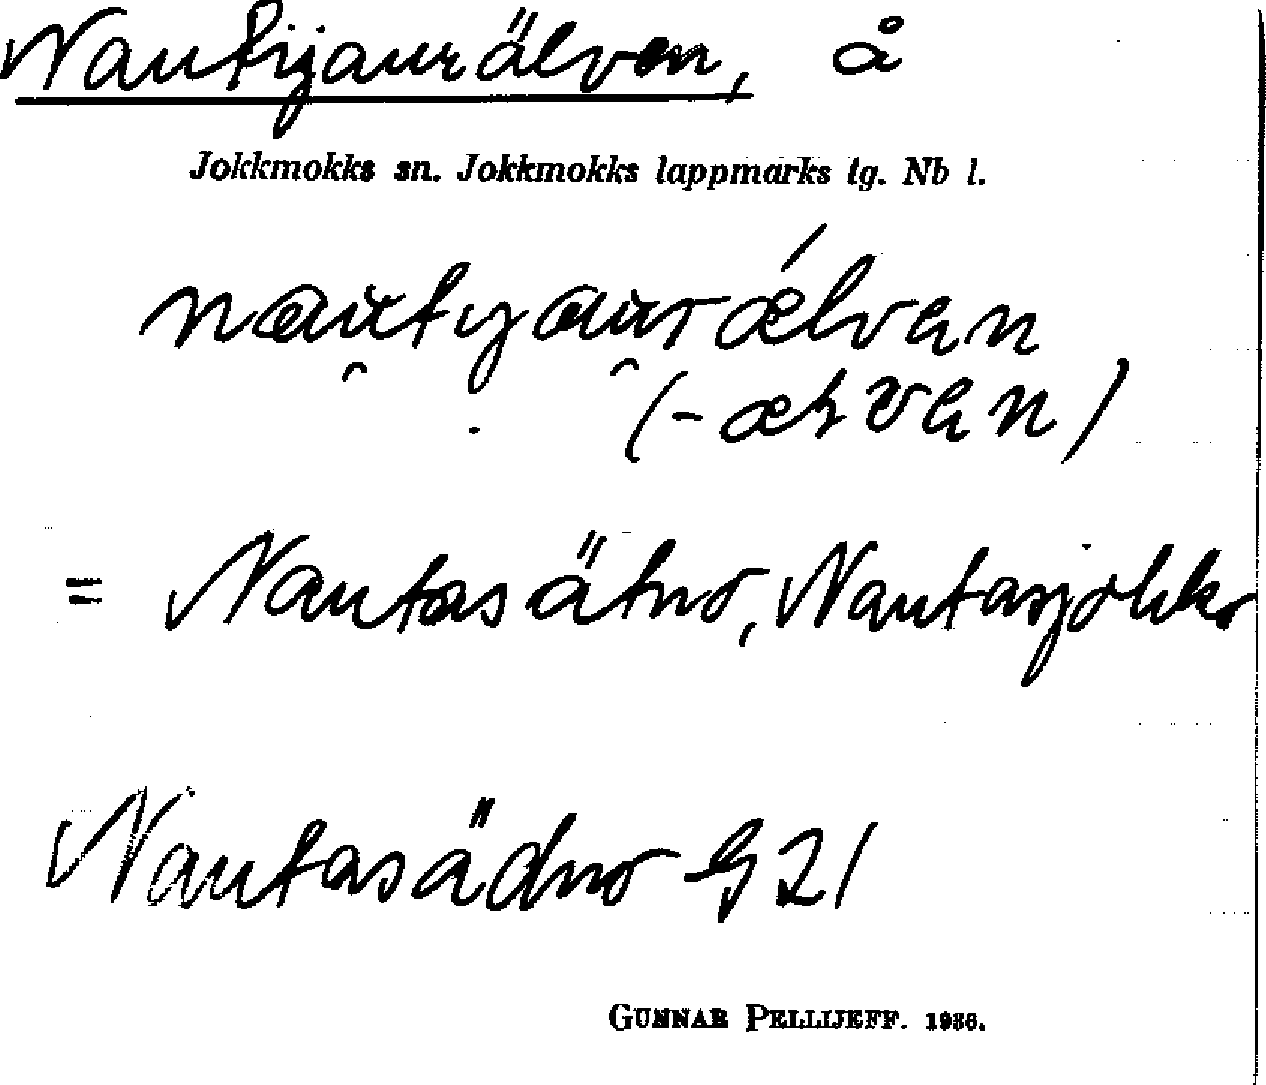 Nautijaurälven, å
Jokkmokks sn. Jokkmokks lappmarks tg. Nb l.
nau̯tyau̯rǽlvan
(-æƚvan)
= Nautasätno, Nautasjohko
Nautasädno G 21
GUNNAR PELLIJEFF. 1936.